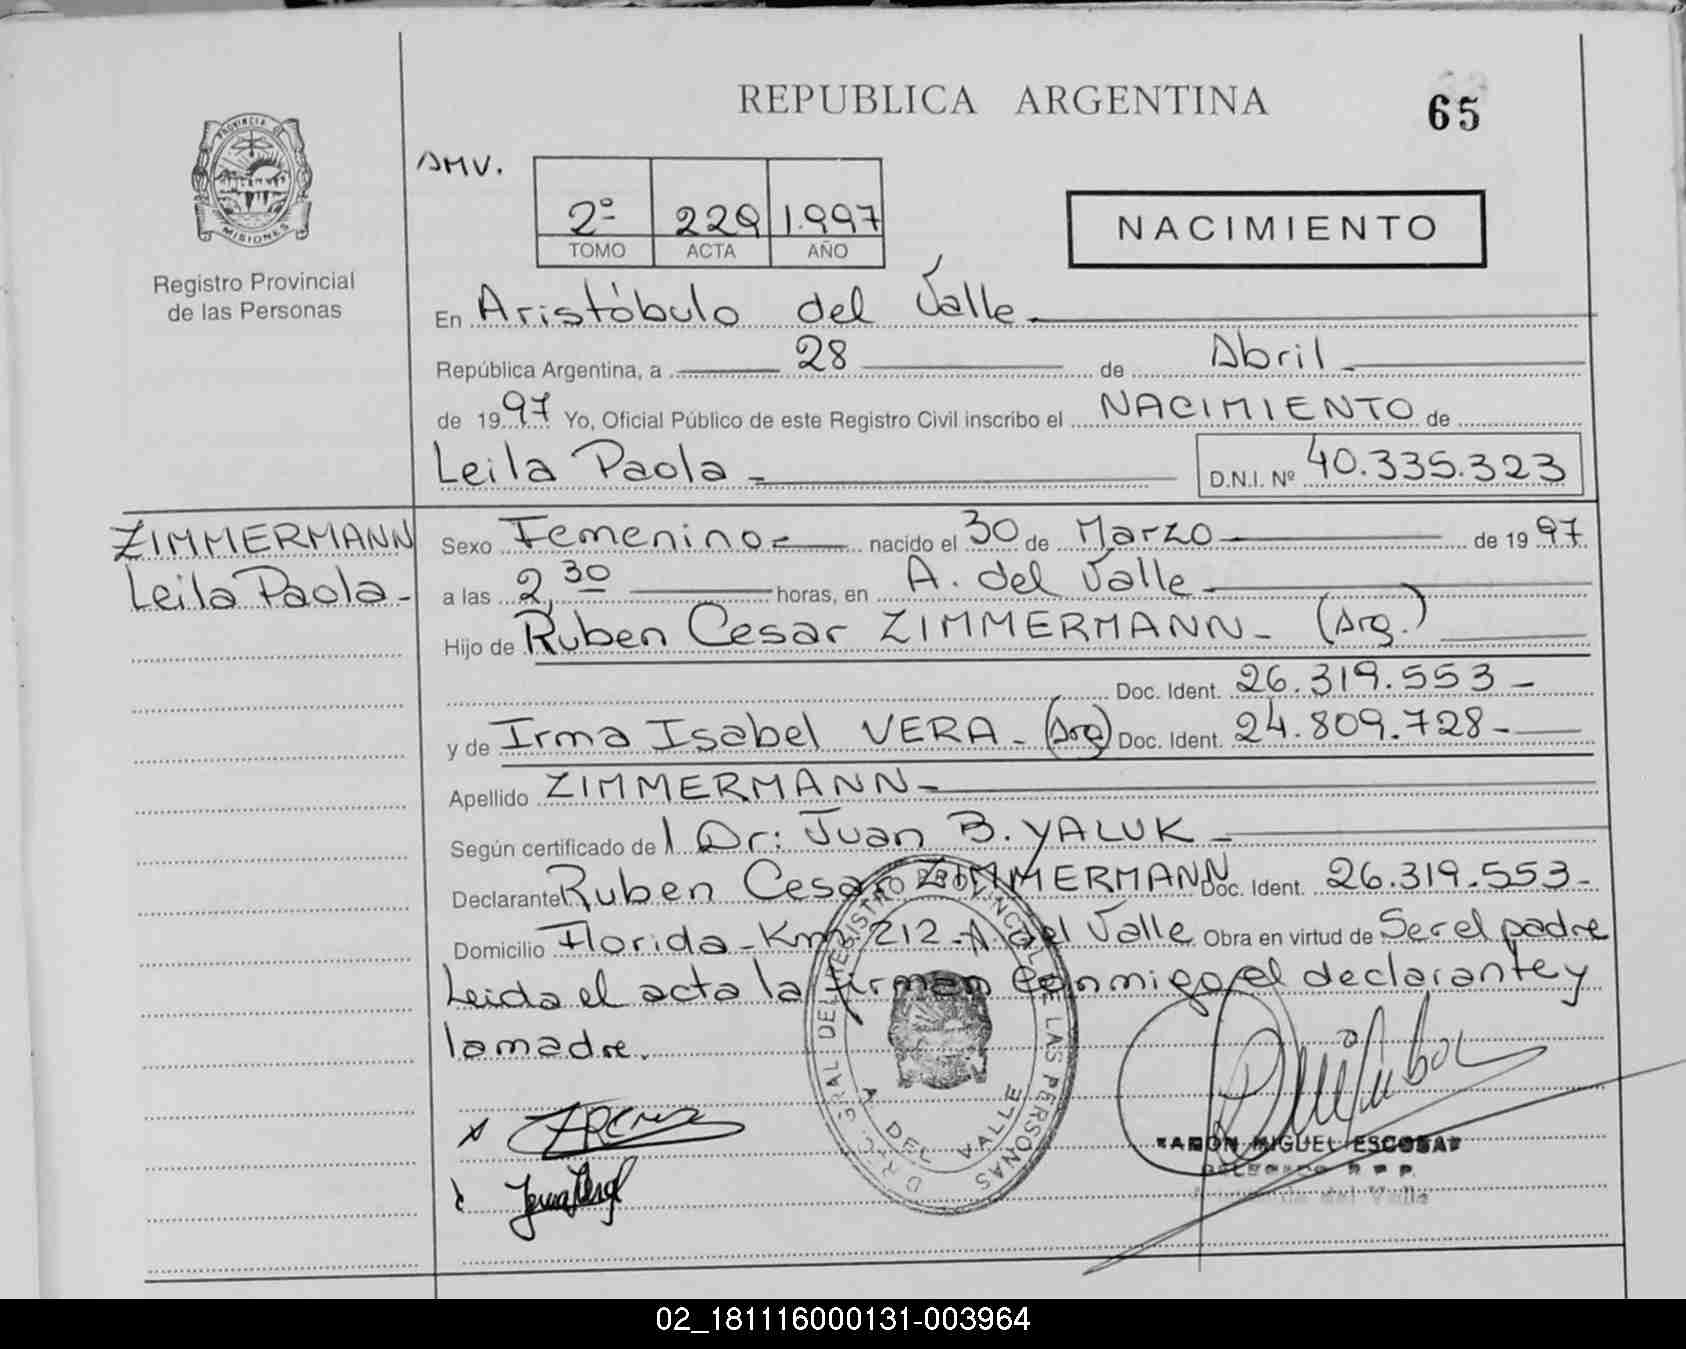 REPUBLICA ARGENTINA
65
PROVINCIA DE
MISIONES
Registro Provincial
de las Personas
AMV.
2º 229 1.997
TOMO ACTA AÑO
NACIMIENTO
En Aristóbulo del Valle
República Argentina, a 28 de Abril
de 1997 Yo, Oficial Público de este Registro Civil inscribo el NACIMIENTO de
Leila Paola D.N.I. Nº 40.335.323
ZIMMERMANN
Leila Paola
Sexo Femenino nacido el 30 de Marzo de 1997
a las 2,30 horas, en A. del Valle
Hijo de Ruben Cesar ZIMMERMANN (Arg.)
Doc. Ident. 26.319.553
y de Irma Isabel VERA (Arg) Doc. Ident. 24.809.728
Apellido ZIMMERMANN
Según certificado del Dr: Juan B. YALUK
Declarante Ruben Cesar ZIMMERMANN Doc. Ident. 26.319.553
Domicilio Florida - Km 212 - A. del Valle Obra en virtud de Ser el padre
Leida el acta la firman conmigo el declarante y
la madre.
REGISTRO PROVINCIAL DE LAS PERSONAS
A. DEL VALLE
MIGUEL ESCOBAR
del Valle
02_181116000131-003964